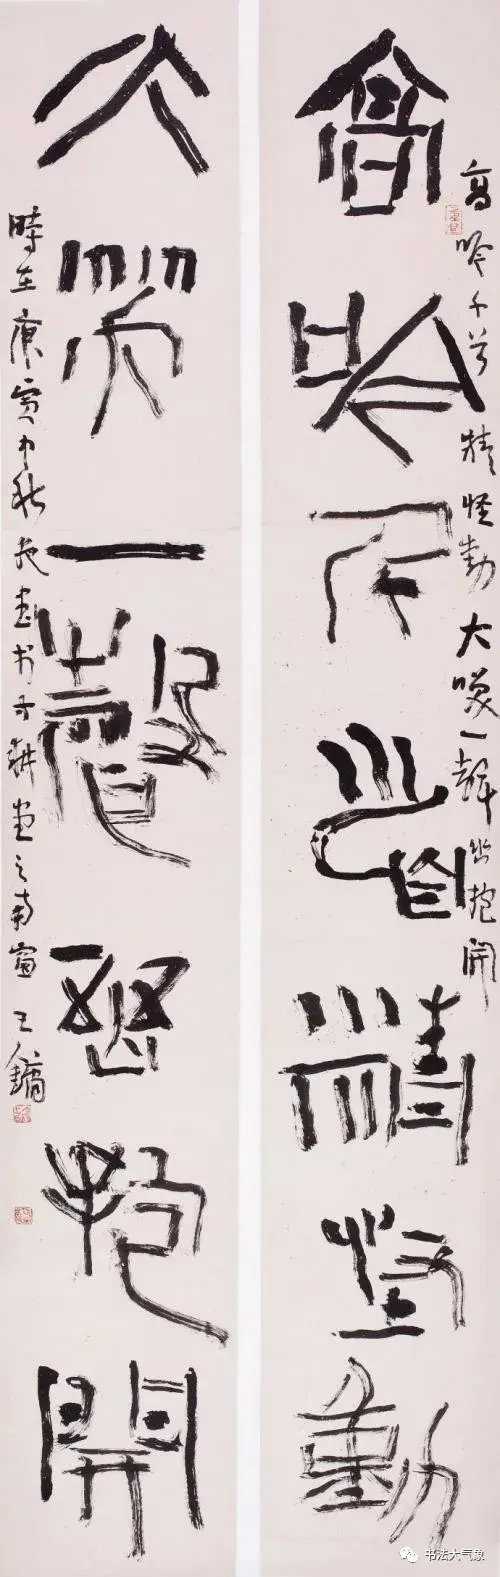 高吟千首精怪動
大笑一聲幽抱開
高吟千首精怪動大咲一聲幽抱開
時在庚寅中秋夜書於不耕堂之南窗王鏞
书法大气象